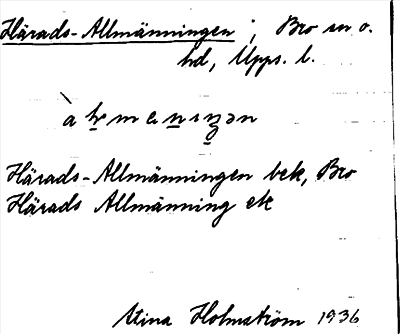 Härads-Allmänningen, Bro sn o.
hd, Upps. l.
Härads-Allmänningen bek, Bro
Härads Allmänning ek
Stina Holmström 1936